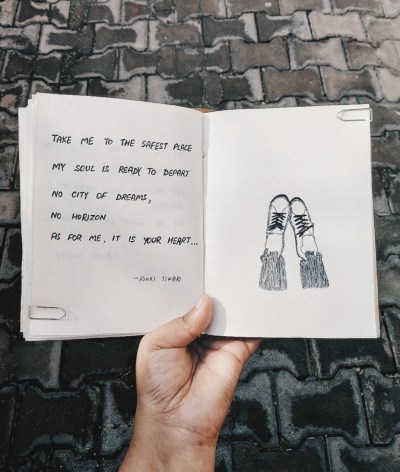 TAKE ME TO THE SAFEST PLACE
MY SOUL IS READY TO DEPART
NO CITY OF DREAMS,
NO HORIZON
AS FOR ME, IT IS YOUR HEART...
-RINKI TIWARI